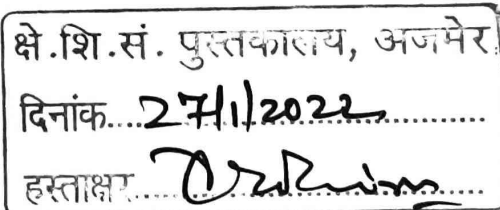 क्षे.शि.सं. पुस्तकालय, अजमेर
दिनांक....27/1/2022..............
हस्ताक्षर....................